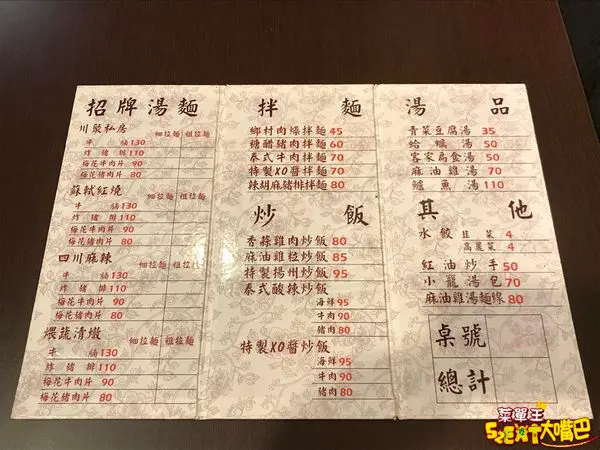 招牌湯麵
川聚私房 細拉麵 粗拉麵
牛腩130
炸豬排110
梅花牛肉片 90
梅花豬肉片 80
蘇軾紅燒 細拉麵 粗拉麵
牛腩130
炸豬排110
梅花牛肉片 90
梅花豬肉片 80
四川麻辣 細拉麵 粗拉麵
牛腩130
炸豬排110
梅花牛肉片 90
梅花豬肉片 80
煨蔬清燉 細拉麵 粗拉麵
牛腩130
炸豬排110
梅花牛肉片 90
梅花豬肉片 80
拌麵
鄉村肉燥拌麵 45
糖醋豬肉拌麵 60
泰式牛肉拌麵 70
特製XO醬拌麵 70
辣胡麻豬排拌麵 80
炒飯
香蒜雞肉炒飯 80
麻油雞粒炒飯 85
特製揚州炒飯 95
泰式酸辣炒飯
海鮮 95
牛肉 90
豬肉 80
特製XO醬炒飯
海鮮 95
牛肉 90
豬肉 80
湯品
青菜豆腐湯 35
蛤蠣湯 50
客家扁食湯 50
麻油雞湯 70
鱸魚湯 110
其他
水餃 韭菜 4
高麗菜 4
紅油炒手 50
小籠湯包 70
麻油雞湯麵線 80
桌號
總計
菜單王
SZEAT大嘴巴